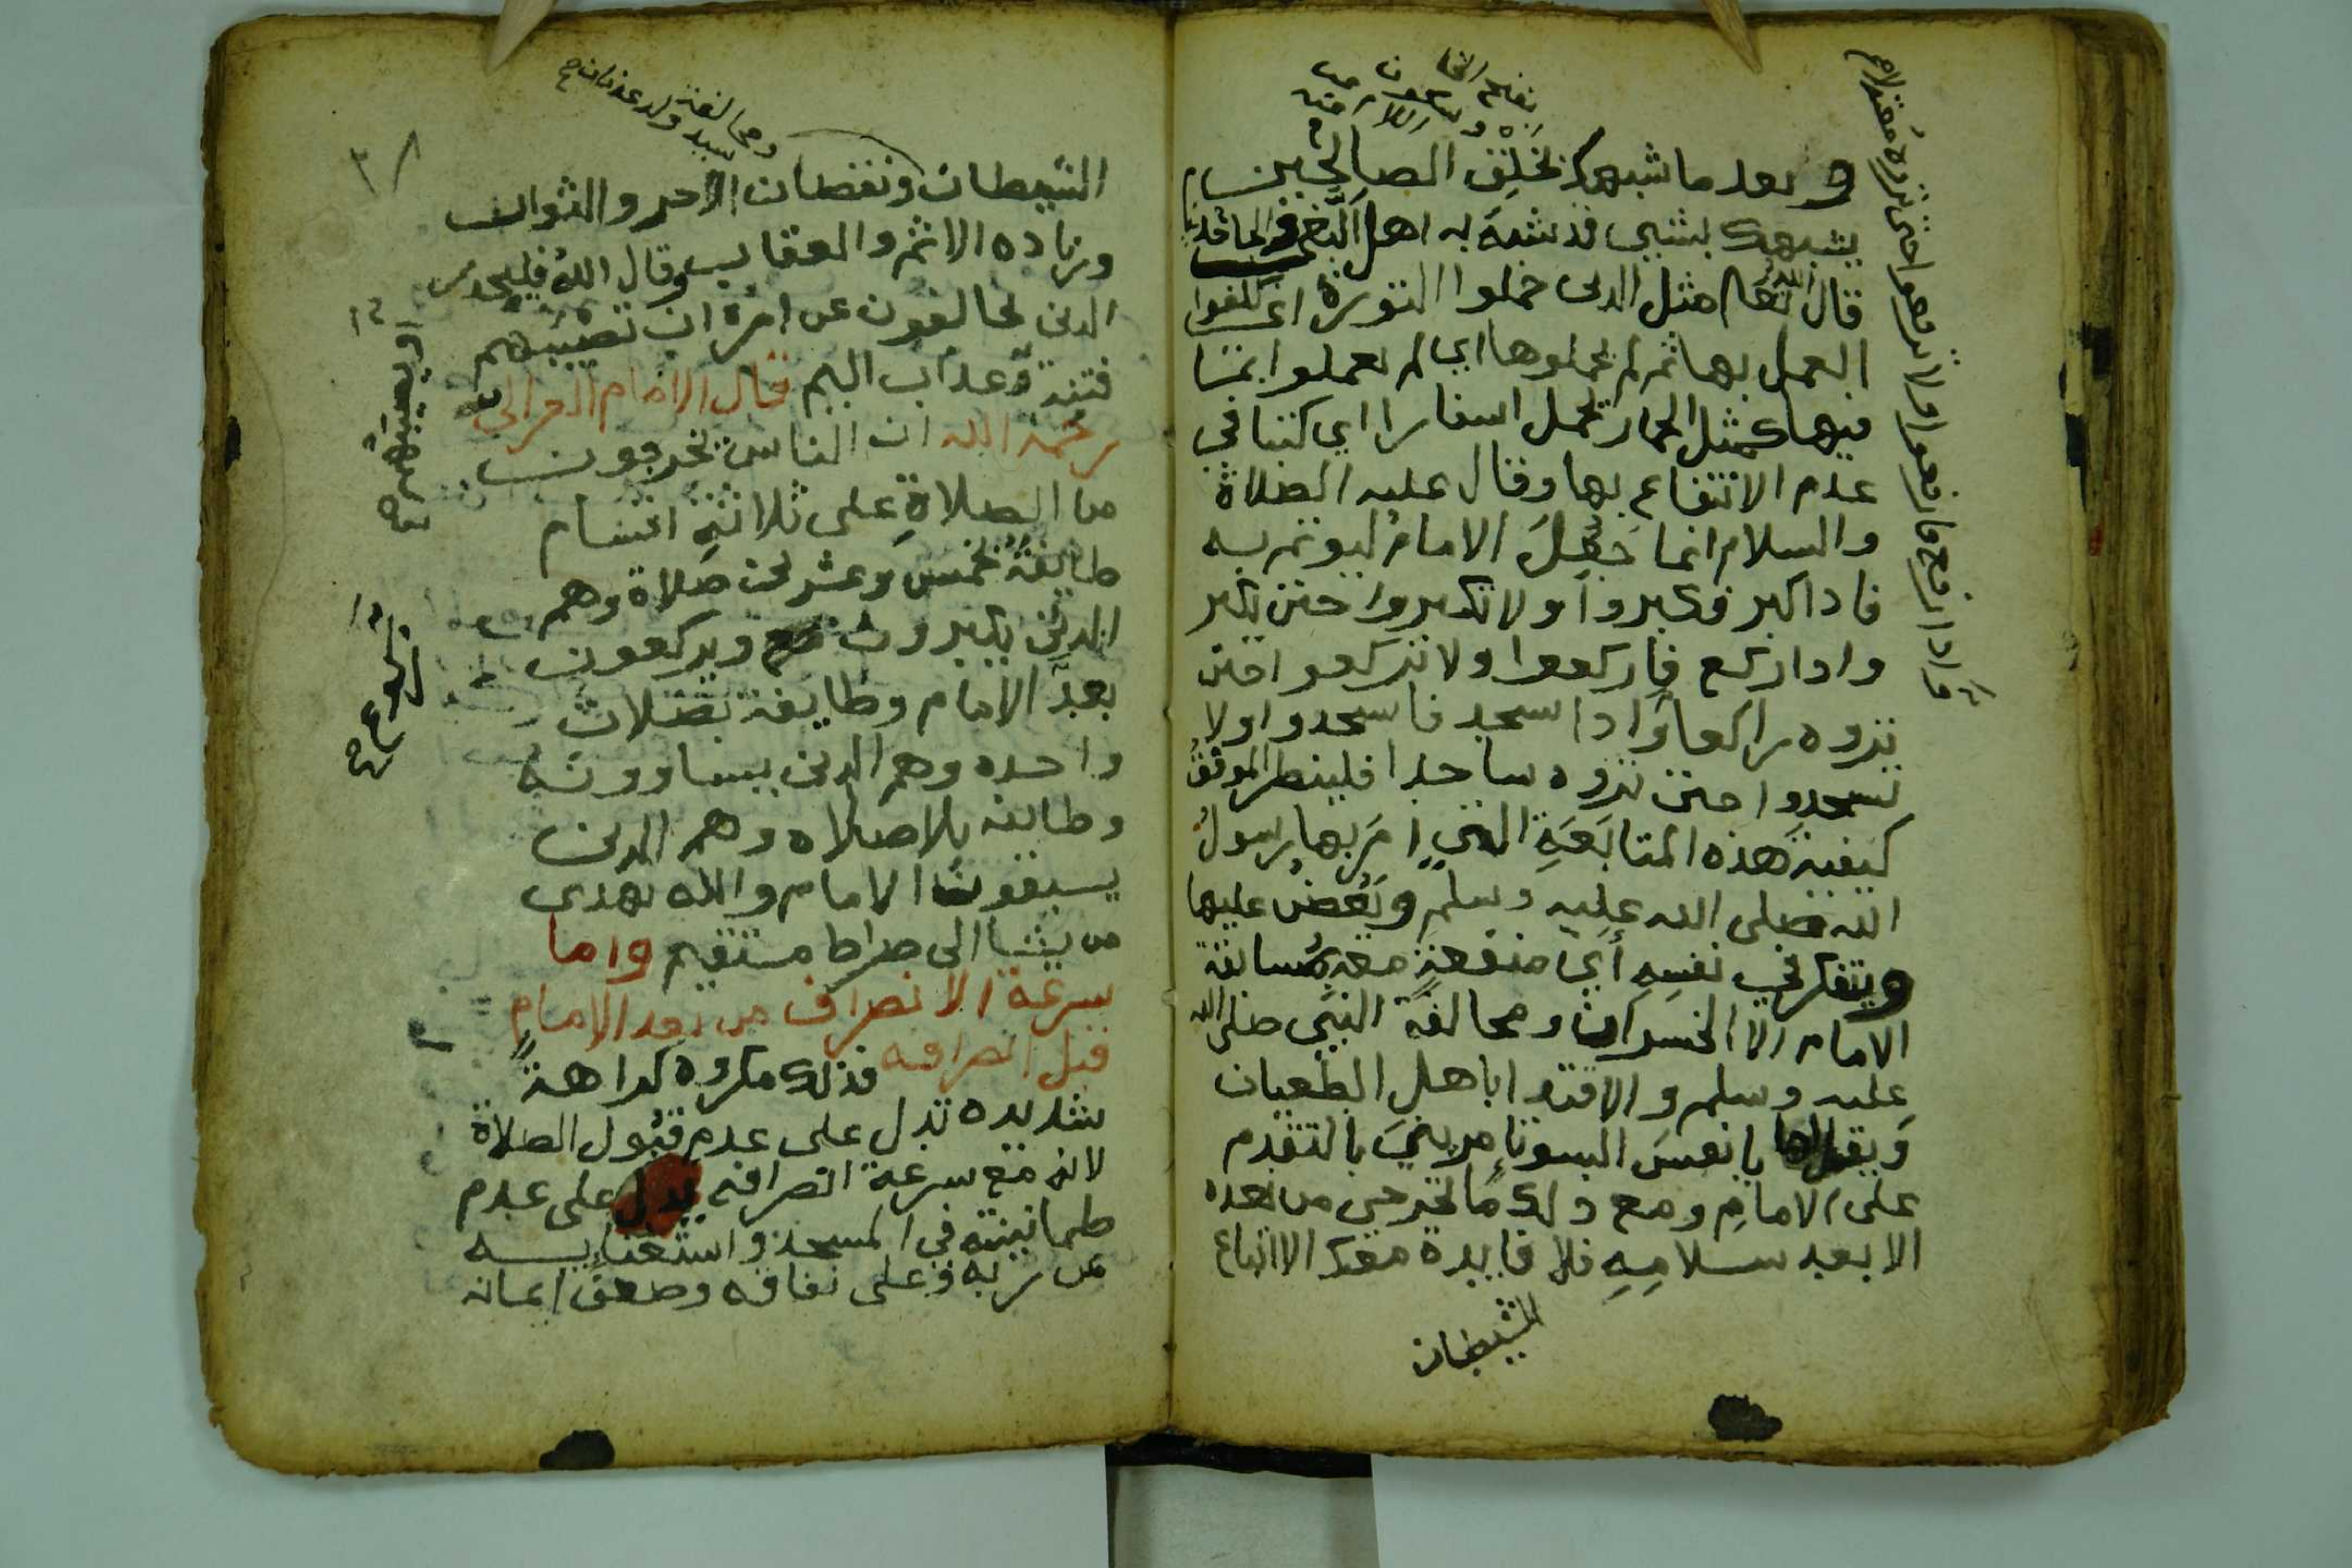 وبعد ما شبهك بخلق الصالحين
يشبهك بشيي قد شبه به اهل
قال الله تعا مثل الدين حملوا التورىة اي كلفوا
العمل بها ثم لم يحملوها اي لم يعملوا بما
فيها كمثل الحمار يحمل اسفارا اي كتبا في
عدم الانتفاع بها وقال عليه الصلاة
والسلام انما جعل الامام ليوتم به
فاداكبر فكبروا ولا تكبروا حتى يكبر
وادا ركع فاركعوا ولا تركعوا حتى
تروه راكعا وادا سجد فاسجدوا ولا
تسجدوا حتى تروه ساجدا فلينظر الموفق
كيفية هذه المتابعة التي امر بها رسول
الله صلى الله عليه وسلم ويعض عليها
ويتفكر في نفسه أي منفعة معه مسابقة
الامام الا الخسران ومخالفة النبي صلى الله
عليه وسلم والاقتدا باهل الطغيان
ويقل لها يا نفس السوتامريني بالتقدم
على الامام ومع دلك ما تخرجي من بعده
الا بعد سلامه فلا فايدة معك الا اتباع
الشيطان
وادا رفع فارفعوا ولا ترفعوا حتى تروه معتدلا صح
الشيطان ونقصان الاجر والثواب
وزياده الاثم والعقاب وقال الله فليحدر
الدين يخالفون عن امره ان تصيبهم
فتنة وعداب اليم قال الامام الغزالي
رحمه الله ان الناس يخرجون
من الصلاة على ثلاثة اقسام
طايفة بخمس وعشرين صلاة وهم
الدين يكبرون ويركعون
بعد الامام وطايفة بصلاة
واحده وهم الدين يساوونه
وطايفة بلا صلاه وهم الدين
يسبقون الامام والله يهدى
من يشا الى صراط مستقيم واما
سرعة الانصراف من بعد الامام
قبل انصرافه فذلك مكروه كراهة
شديده تدل على عدم قبول الصلاة
لانه مع سرعة انصرافه يدل على عدم
طمانينته في المسجد واستغنايه
عن ربه وعلى نفاقه وضعف ايمانه
ومخالفة
سيد ولد عدنان صح
او يصيبهم صح